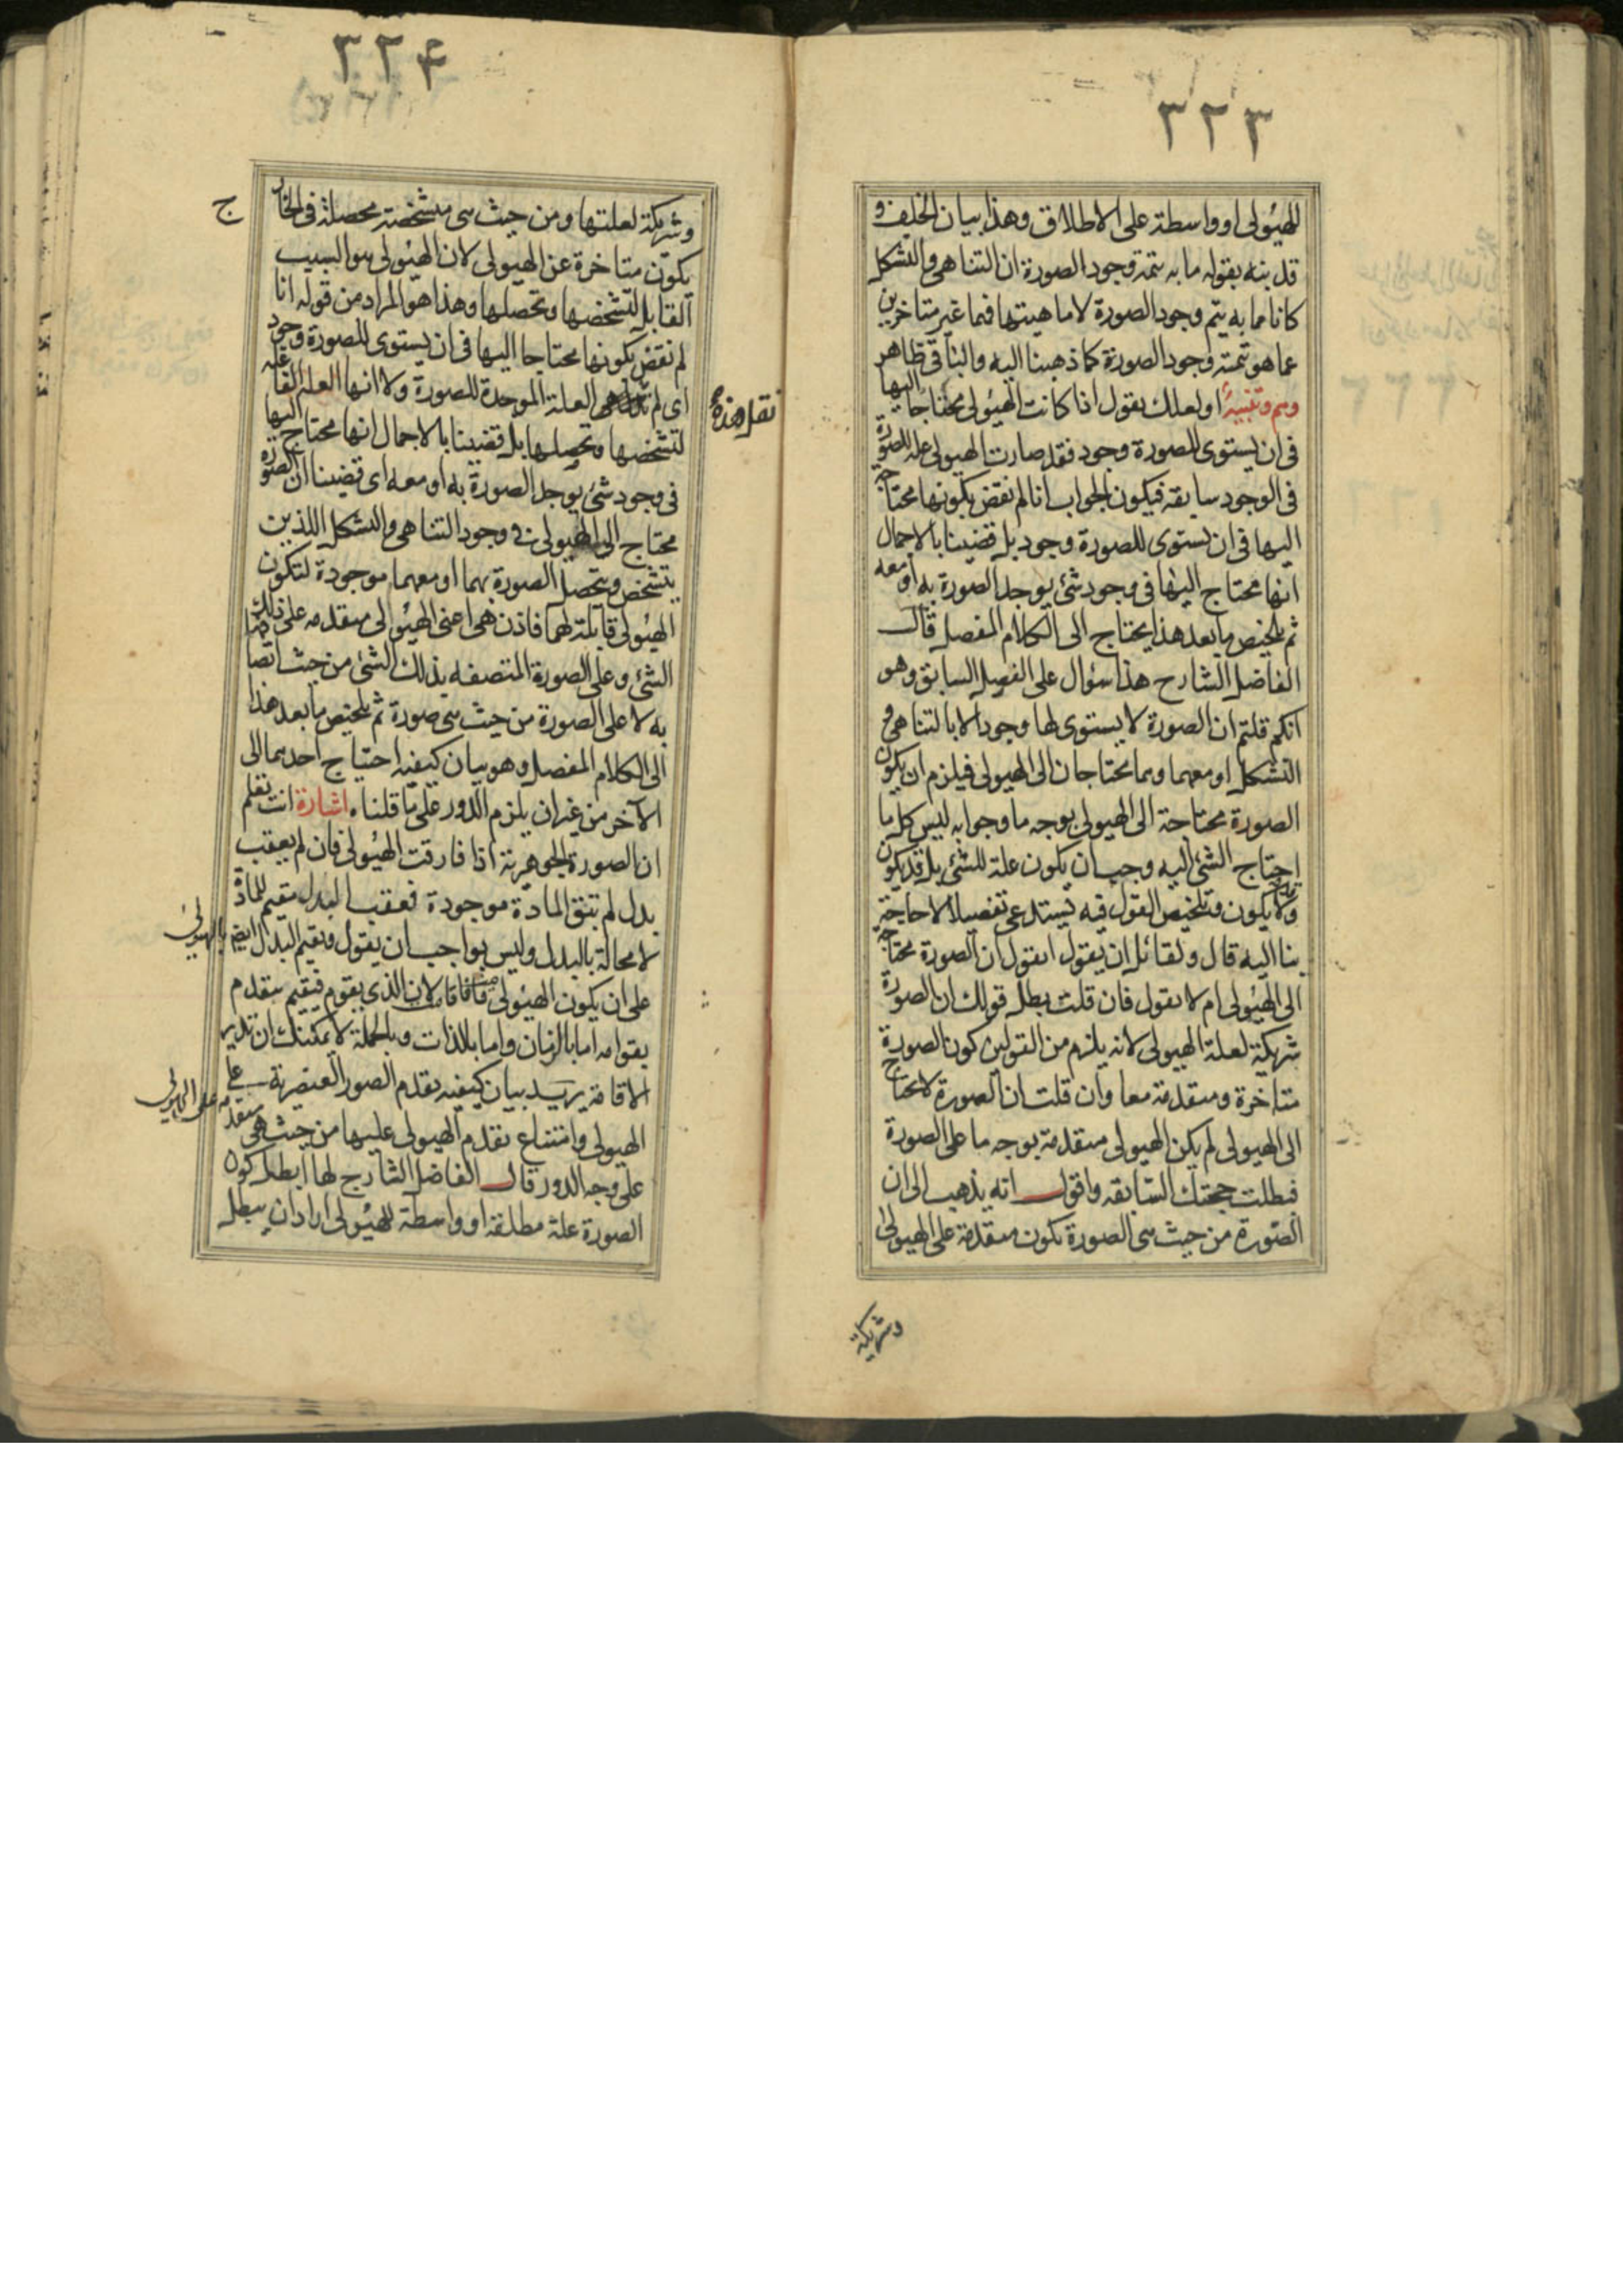 ٣٢٣
للهيولى او واسطة على الاطلاق وهذا بيان الخلف و
قد بنه بقوله ما به يتمه وجود الصورة ان التناهى والتشكل
كانا مما به يتم وجود الصورة لا ماهيتها فهما غير متاخرين
عما هو تتمته وجود الصورة كما ذهبنا اليه والباقى ظاهر
وهم وتنبيه او لعلك تقول اذا كانت الهيولى محتاجا اليها
فى ان يستوى للصورة وجود فقد صارت الهيولى علة للصورة
فى الوجود سابقه فيكون الجواب انا لم نقض بكونها محتاجا
اليها فى ان يستوى للصورة وجود بل قضينا بالاجمال
انها محتاج اليها فى وجود شئ يوجد الصورة به او معه
ثم تلخيص ما بعد هذا يحتاج الى الكلام المفصل قال
الفاضل الشارح هذا سؤال على الفصل السابق وهو
انكم قلتم ان الصورة لا يستوى لها وجود الا بالتناهى و
التشكل او معهما وهما يحتاجان الى الهيولى فيلزم ان يكون
الصورة محتاجة الى الهيولى بوجه ما وجوابه ليس كل ما
احتاج الشئ اليه وجب ان يكون علة للشئ بل قد يكون
وقد لا يكون وتلخيص القول فيه يستدعى تفصيلا لا حاجة
بنا اليه قال ولقائل ان يقول اتقول ان الصورة محتاجة
الى الهيولى ام لا تقول فان قلت بطل قولك ان الصورة
شريكة لعلة الهيولى لانه يلزم من القولين كون الصورة
متاخرة ومتقدمة معا وان قلت ان الصورة لا تحتاج
الى الهيولى لم يكن الهيولى متقدمة بوجه ما على الصورة
فبطلت حجتك السابقه واقول انه يذهب الى ان
الصورة من حيث هى الصورة تكون متقدمة على الهيولى
وشريكة
٣٢٤
وشريكة لعلتها ومن حيث هى متشخصة محصلة فى الخارج
يكون متاخرة عن الهيولى لان الهيولى هو السبب
القابل لتشخصها وتحصلها وهذا هو المراد من قوله انا
لم نقض بكونها محتاجا اليها فى ان يستوى للصورة وجود
اى لم نقل هى العلة الموجدة للصورة ولا انها العلة الفاعله
لتشخصها وتحصلها بل قضينا بالاجمال انها محتاج اليها
فى وجود شئ يوجد الصورة به او معه اى قضينا ان الصورة
محتاج الى الهيولى فى وجود التناهى والتشكل اللذين
يتشخص ويتحصل الصورة بهما او معهما موجودة لتكون
الهيولى قابلة لهما فاذن هى اعنى الهيولى متقدمه على ذلك
الشئ وعلى الصورة المتصفه بذلك الشئ من حيث اتصافها
به لا على الصورة من حيث هى صورة ثم تلخيص ما بعد هذا
الى الكلام المفصل وهو بيان كيفية احتياج احدهما الى
الآخر من غير ان يلزم الدور على ما قلناه اشارة انت تعلم
ان الصورة الجوهرية اذا فارقت الهيولى فان لم يعقب
بدل لم تبق المادة موجودة فمعقب البدل مقيم للمادة
لا محالة بالبدل وليس بواجب ان يقول ويقيم البدل ايضا بالهيولى
على ان يكون الهيولى قامت فاقامت لان الذى يقوم فيقيم متقدم
بقوامه اما بالزمان واما بالذات وبالجملة لا يمكنك ان تدير
الاقامة يريد بيان كيفيه تقدم الصور العنصرية على
الهيولى وامتناع تقدم الهيولى عليها من حيث هى متقدمه على الهيولى
على وجه الدور قال الفاضل الشارح لما ابطل كون
الصورة علة مطلقة او واسطة للهيولى اراد ان يبطل